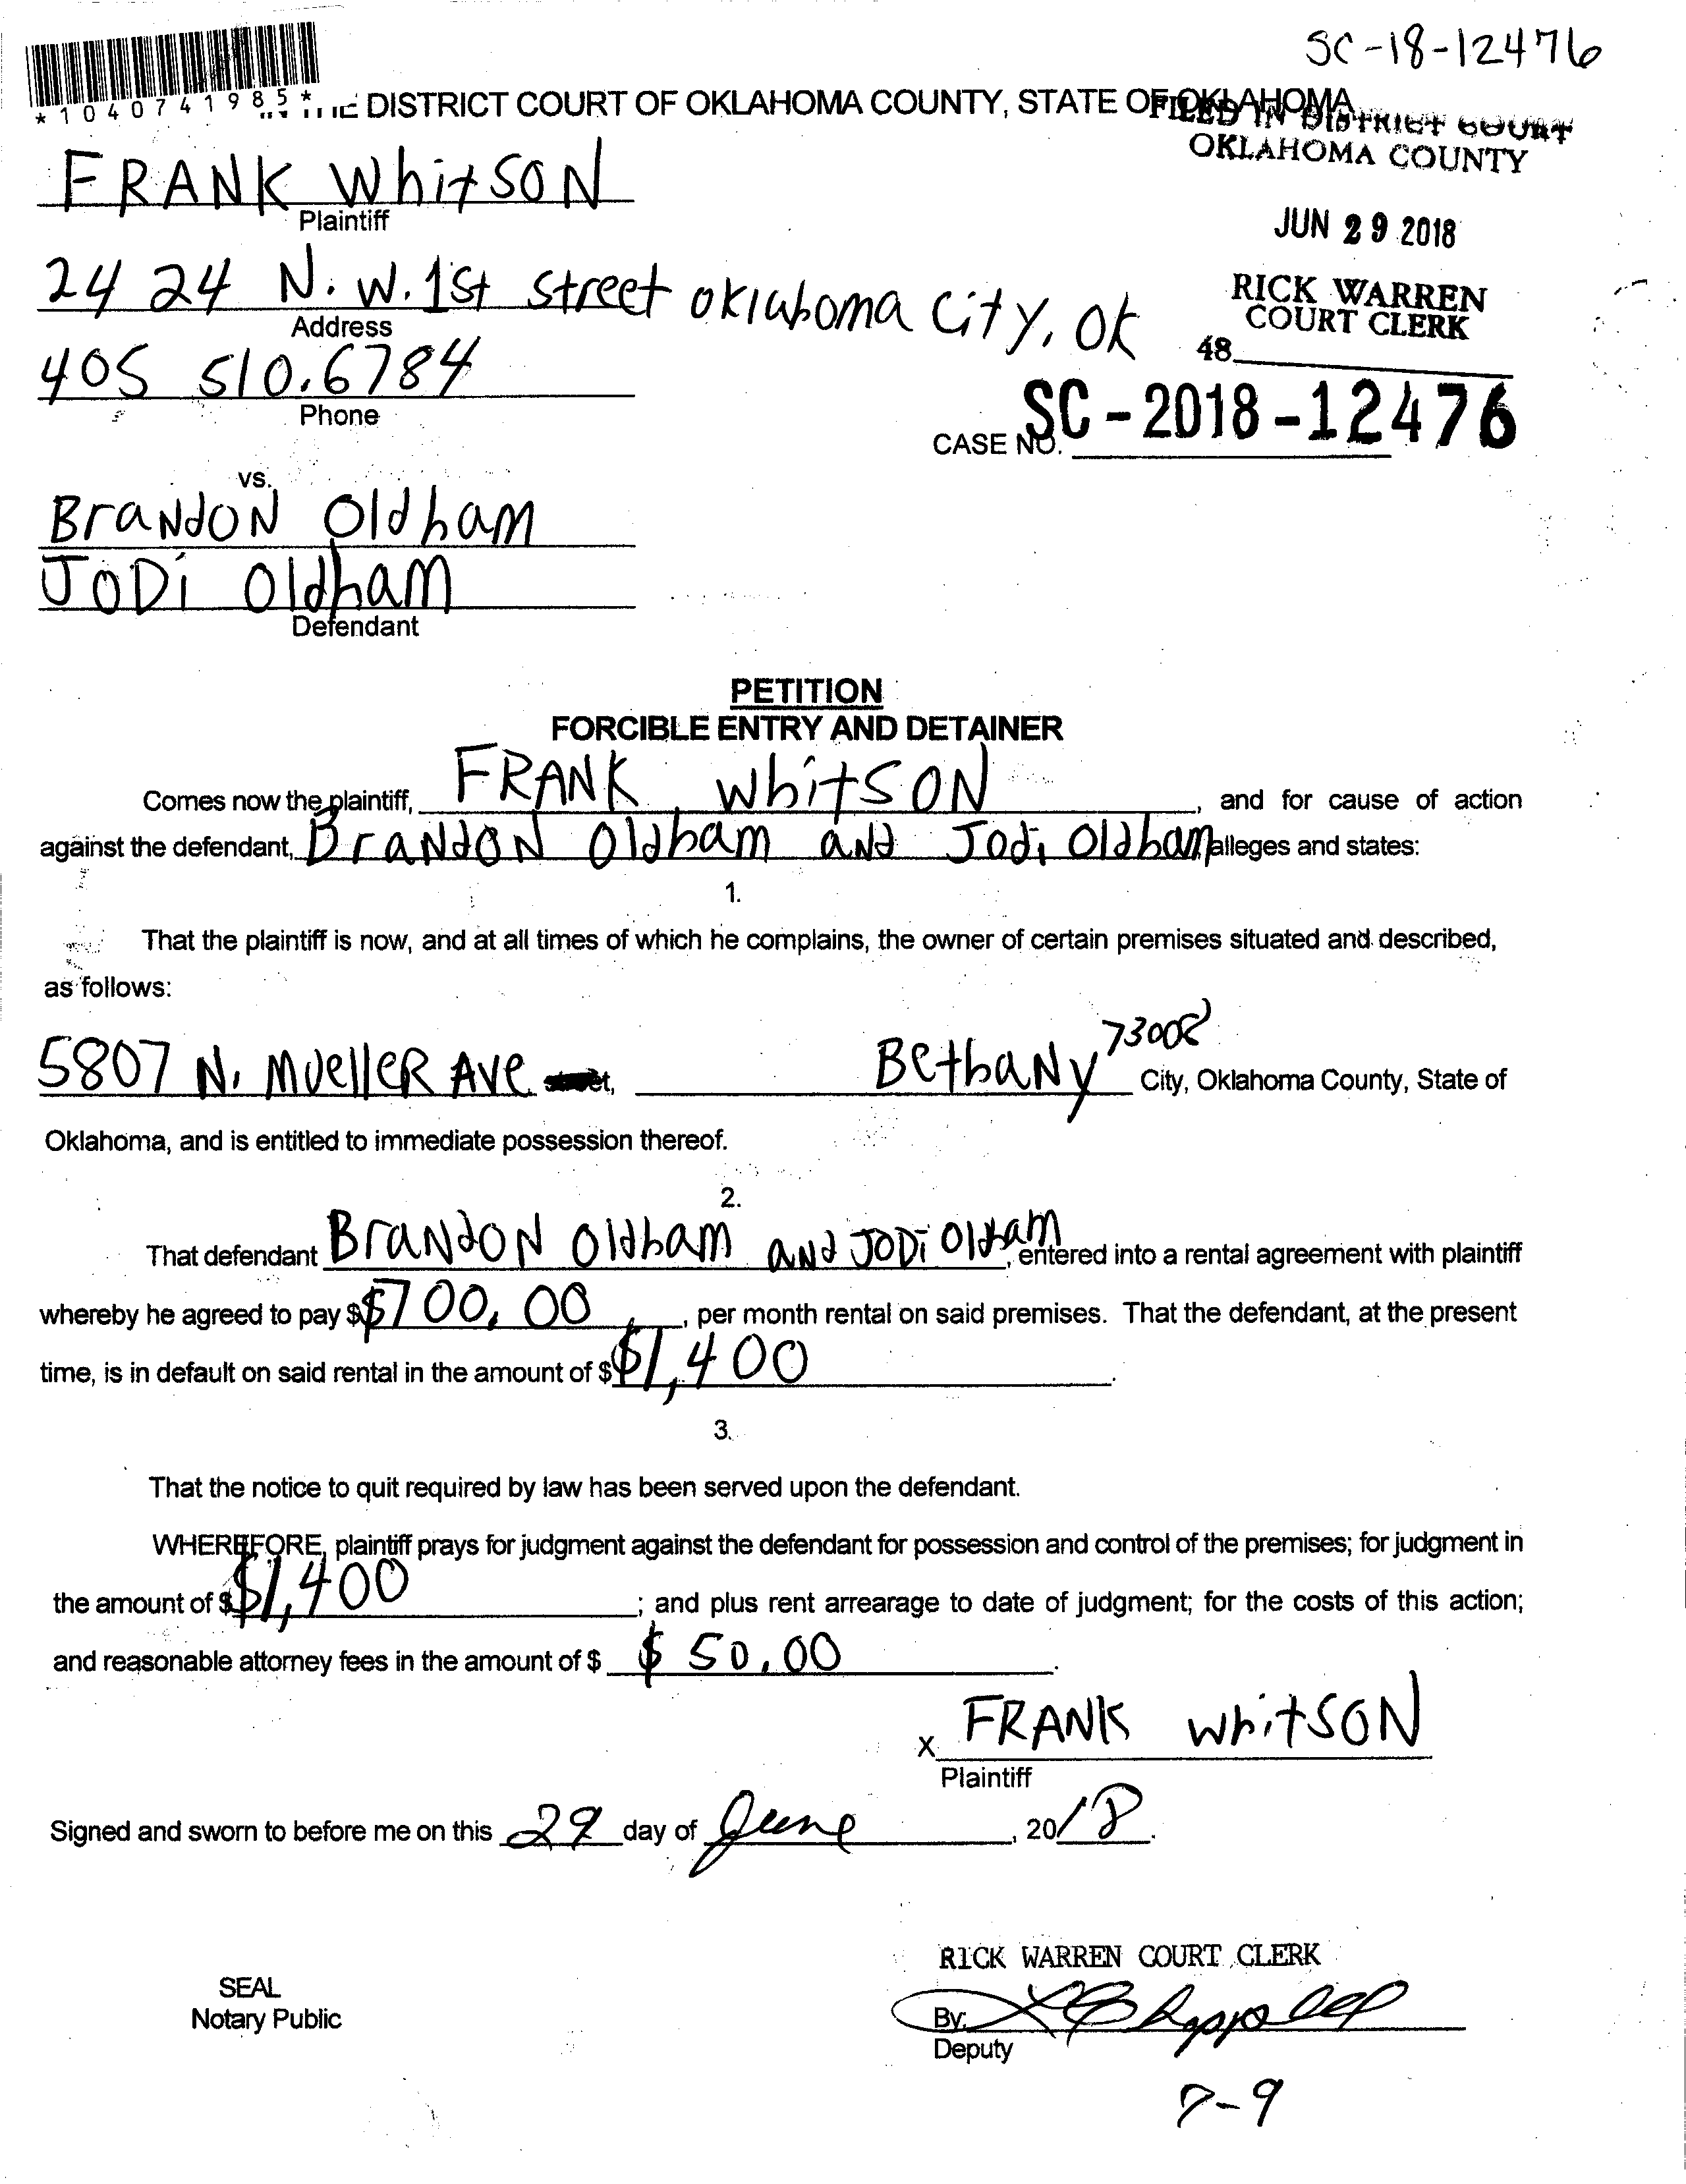 SC-18-12476
*1040741985*
DISTRICT COURT OF OKLAHOMA COUNTY, STATE OF OKLAHOMA
FILED IN DISTRICT COURT
OKLAHOMA COUNTY
FRANK WhitSON
Plaintiff
JUN 29 2018
2424 N.W. 1st street oklahoma City, OK
Address
RICK WARREN
COURT CLERK
48
405 510.6784
Phone
CASE NO. SC-2018-12476
vs.
BraNdON Oldham
JODi Oldham
Defendant
PETITION
FORCIBLE ENTRY AND DETAINER
Comes now the plaintiff, FRANK whitSON, and for cause of action
against the defendant, BraNdON Oldham aNd Jodi Oldham alleges and states:
1.
That the plaintiff is now, and at all times of which he complains, the owner of certain premises situated and described,
as follows:
5807 N. MuelleR AVe, BethaNy 73008 City, Oklahoma County, State of
Oklahoma, and is entitled to immediate possession thereof.
2.
That defendant BraNdON Oldham aNd JODi Oldham, entered into a rental agreement with plaintiff
whereby he agreed to pay $$700.00, per month rental on said premises. That the defendant, at the present
time, is in default on said rental in the amount of $$1,400.
3.
That the notice to quit required by law has been served upon the defendant.
WHEREFORE, plaintiff prays for judgment against the defendant for possession and control of the premises; for judgment in
the amount of $$1,400; and plus rent arrearage to date of judgment; for the costs of this action;
and reasonable attorney fees in the amount of $ $50.00.
X FRANK whitSON
Plaintiff
Signed and sworn to before me on this 29 day of June, 2018.
RICK WARREN COURT CLERK
SEAL
Notary Public
By:
Deputy
7-9